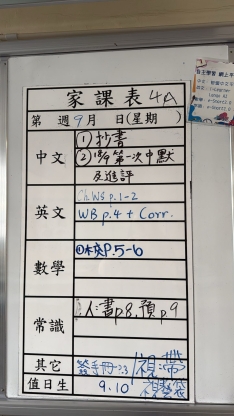 家課表 4A
第 週 9月 日(星期 )
中文
① 抄書
② 18/9 第一次中默
及進評
英文
Ch. WS p.1-2
WB p.4 + Corr.
數學
P.5-6
常識
書p8, 預p9
其它
簽手冊
值日生
9.10